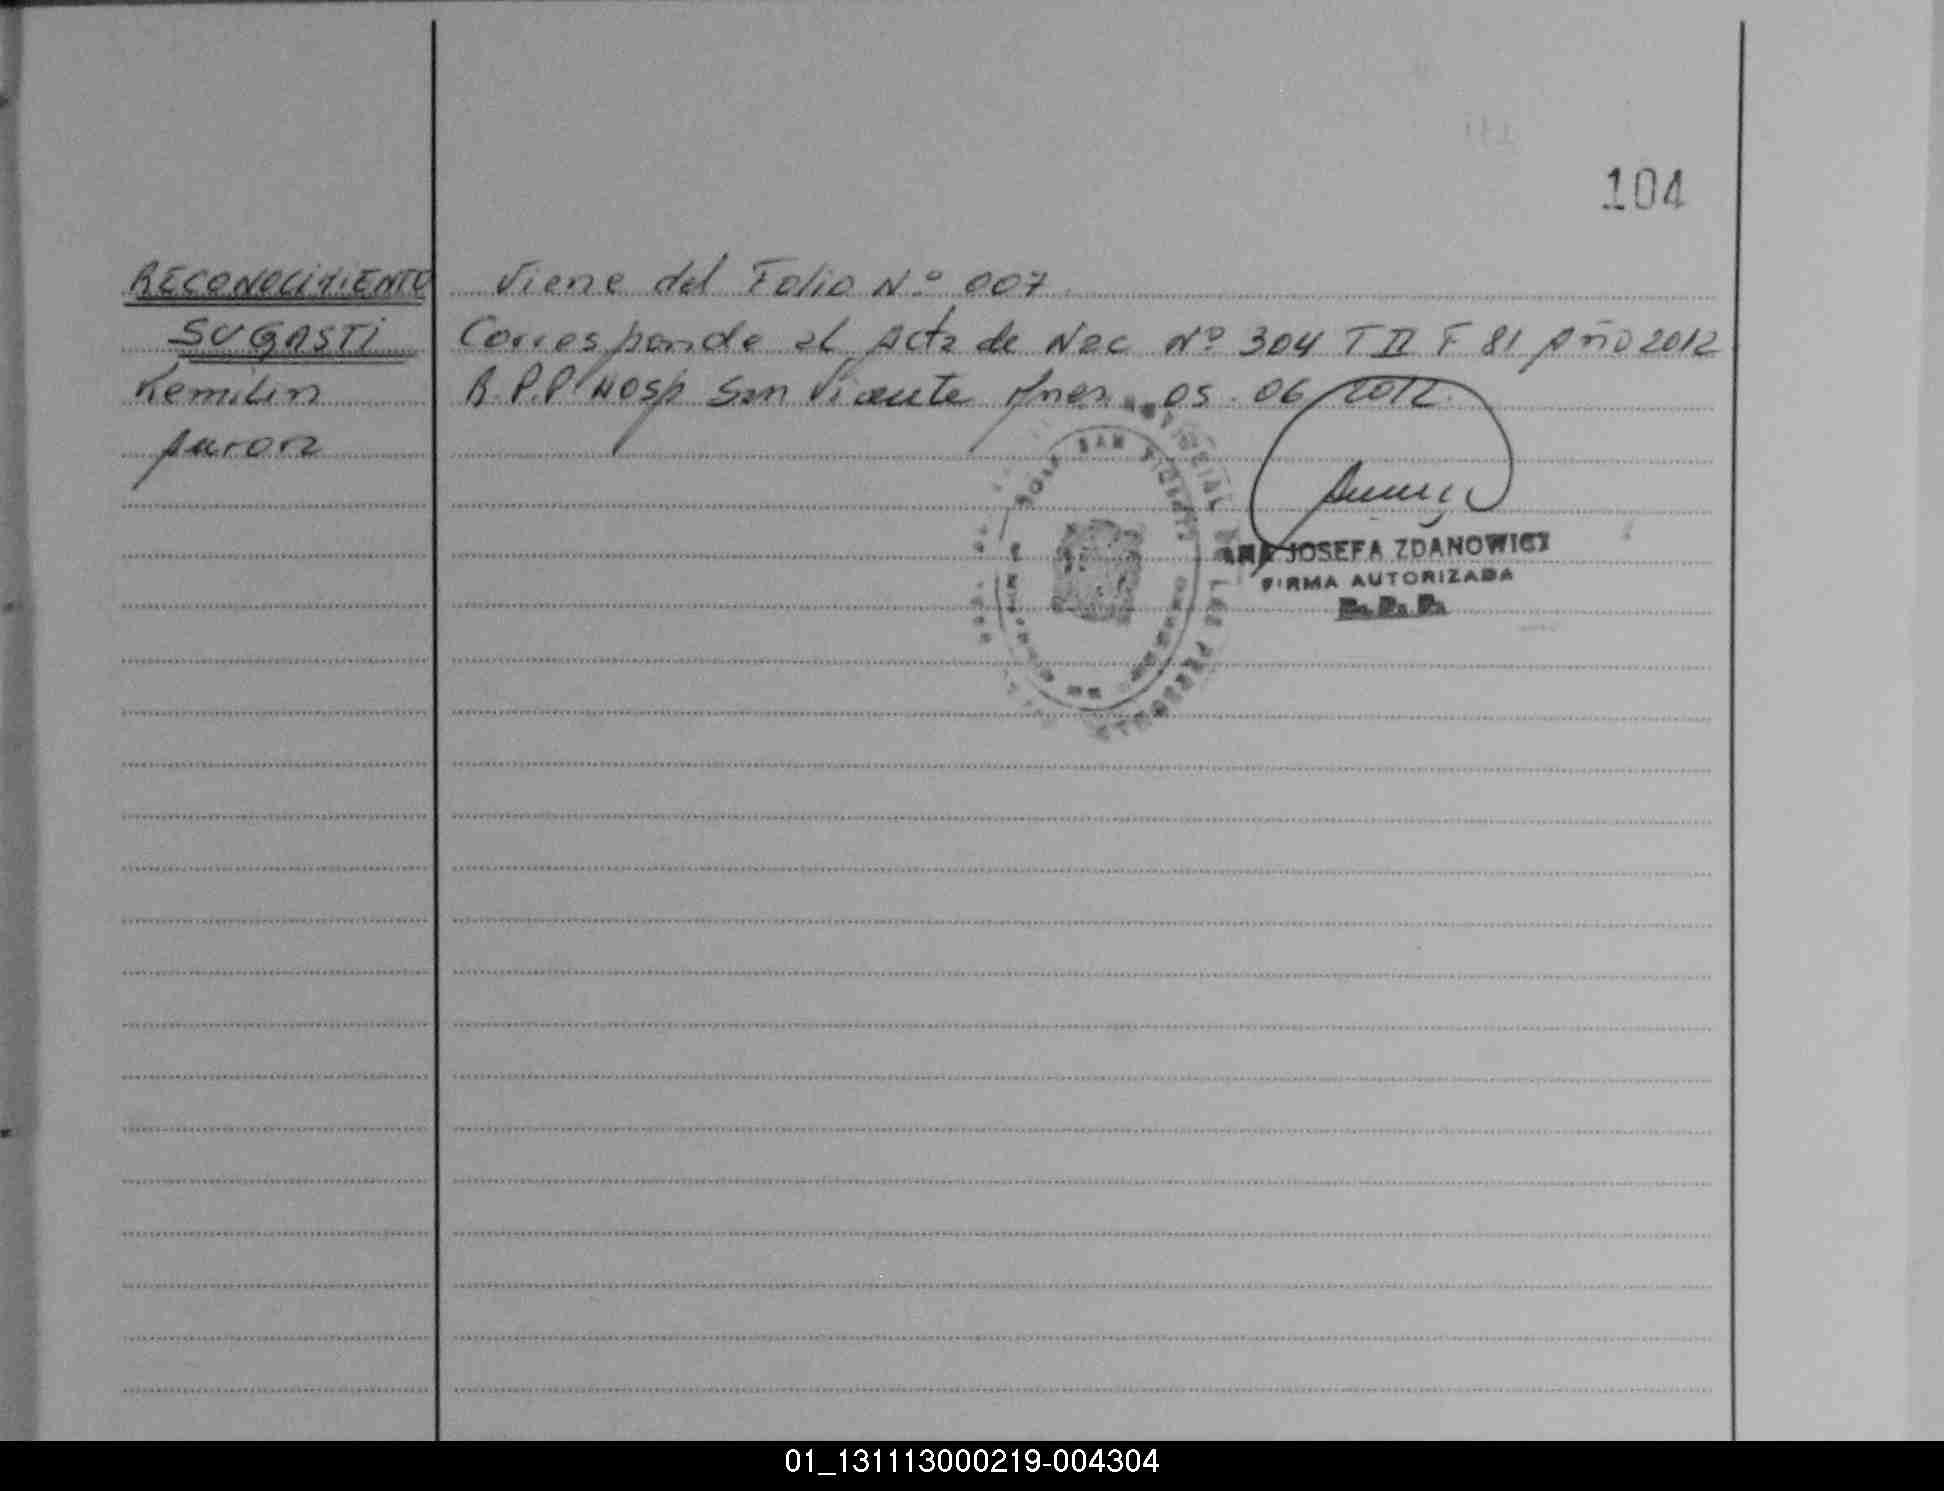 104
RECONOCIMIENTO
SUGASTI
Kemilin
Aurora
Viene del Folio Nº 007
Corresponde al Acta de Nac Nº 304 T II F 81 Año 2012
R.P.P. Hosp San Vicente 05.06.2012
SAN VICENTE
LAS PERSONAS
ANA JOSEFA ZDANOWICZ
FIRMA AUTORIZADA
R. P. P.
01_131113000219-004304